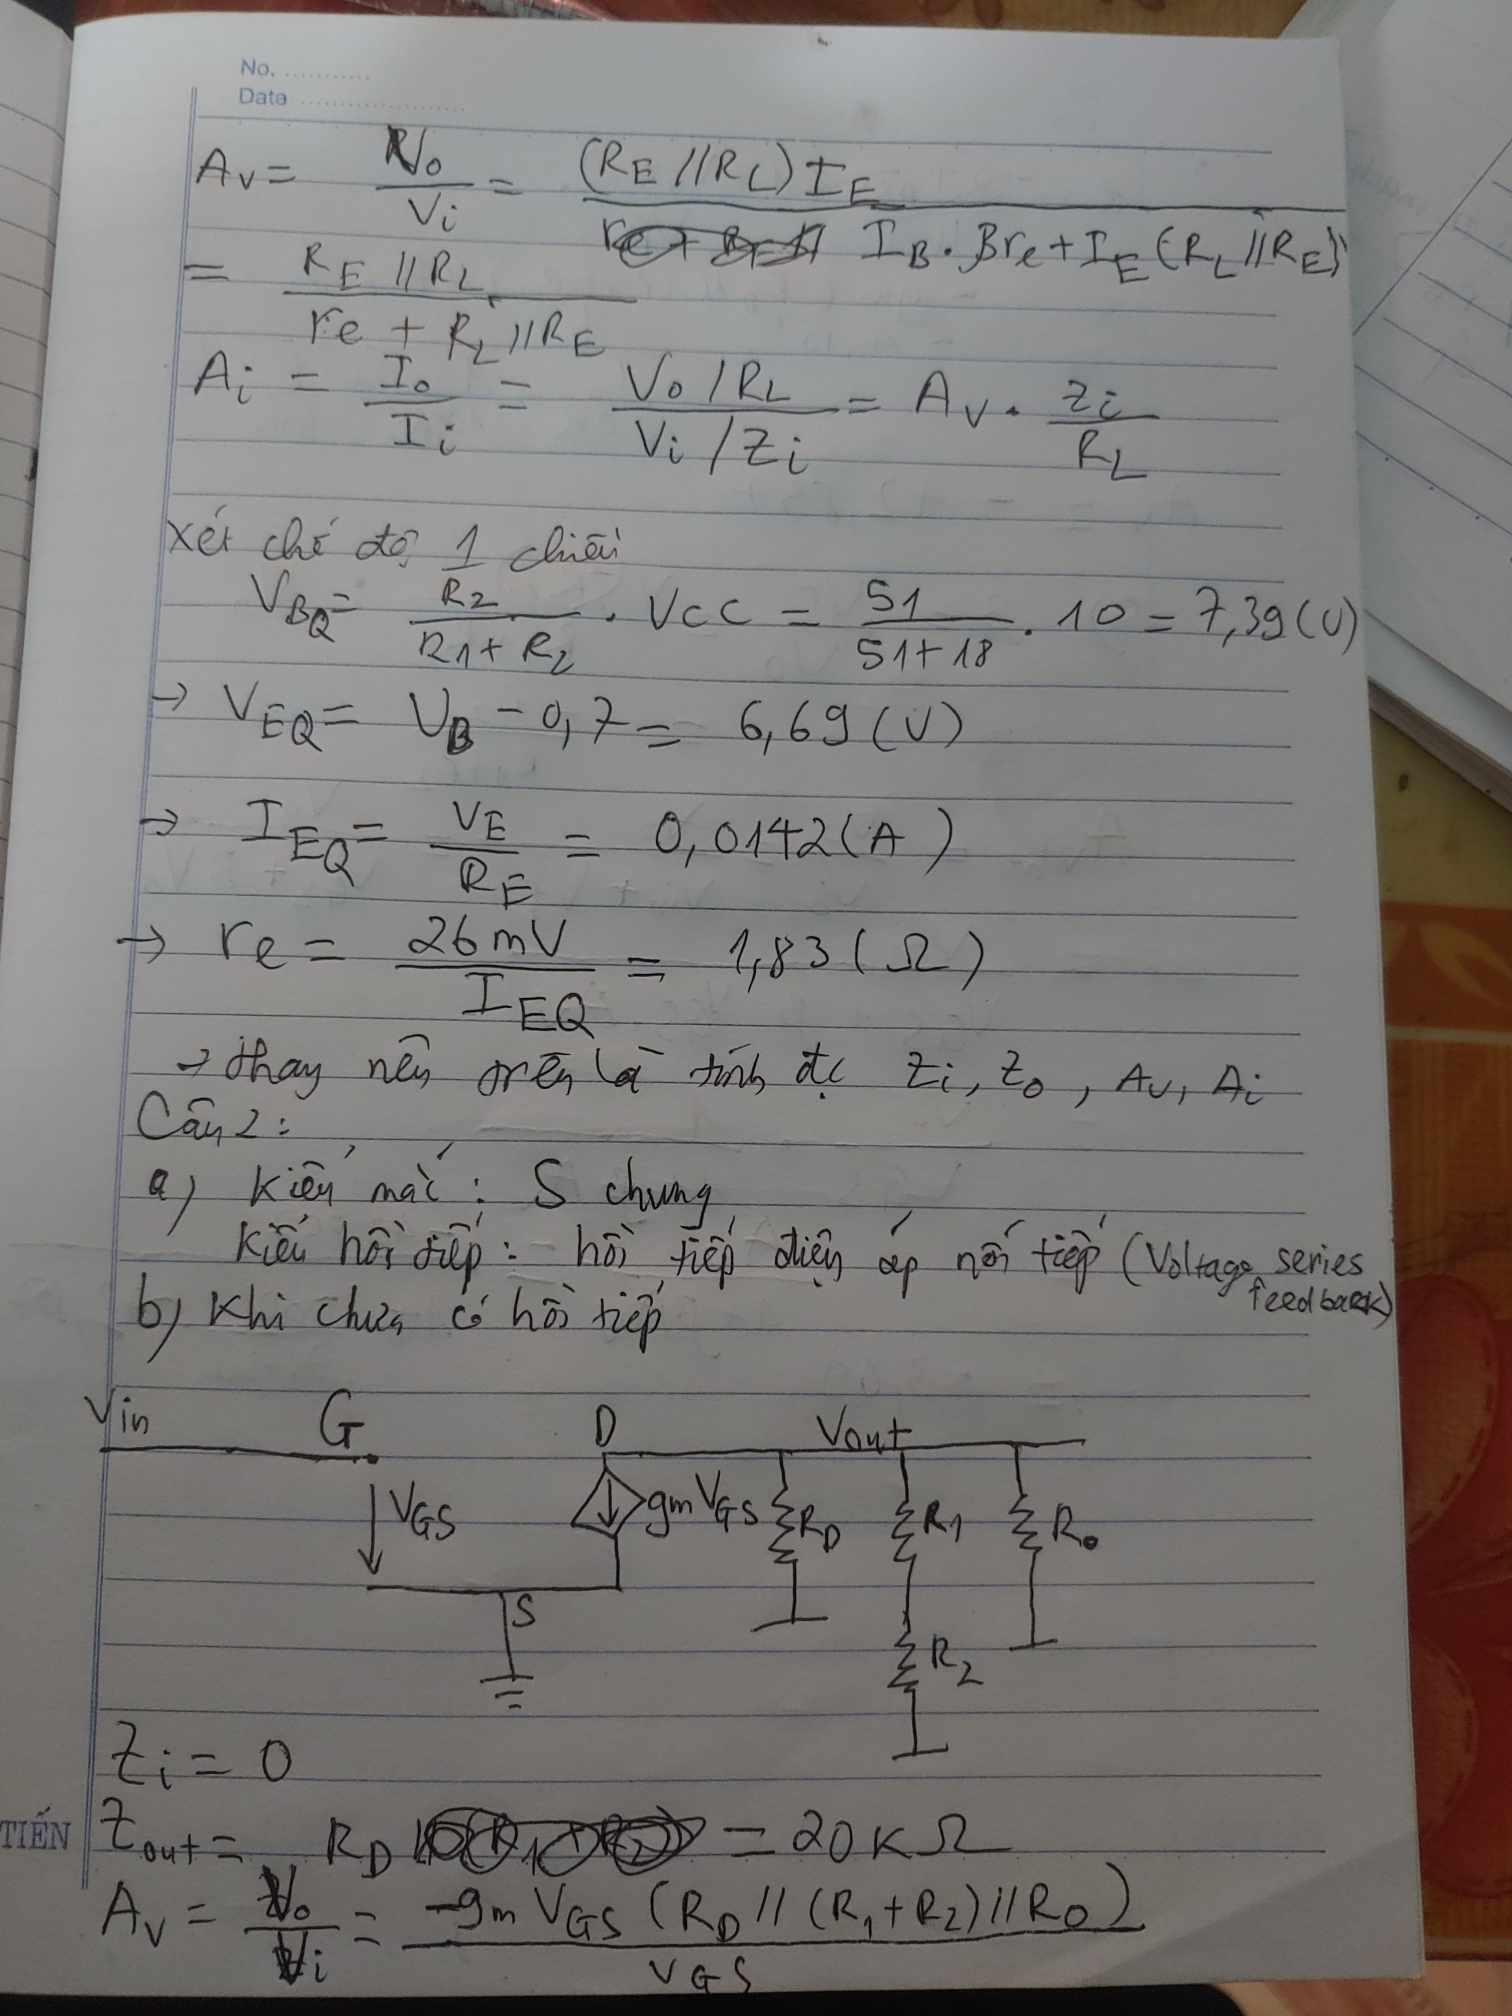 No. ............
Date .....................
Av = Vo / Vi = (RE // RL) IE / IB . βre + IE (RL // RE)
= RE // RL / re + RL // RE
Ai = Io / Ii = Vo / RL / Vi / Zi = Av . Zi / RL
Xét chế độ 1 chiều
VBQ = R2 / R1 + R2 . VCC = 51 / 51 + 18 . 10 = 7,39 (V)
→ VEQ = VB - 0,7 = 6,69 (V)
→ IEQ = VE / RE = 0,0142 (A)
→ re = 26 mV / IEQ = 1,83 (Ω)
→ thay nên trên là tính đc Zi, Zo, Av, Ai
Câu 2:
a) Kiểu mắc: S chung
Kiểu hồi tiếp: hồi tiếp điện áp nối tiếp (Voltage series
feedback)
b) Khi chưa có hồi tiếp
Vin G D Vout
VGS gmVGS RD R1 Ro
S R2
Zi = 0
Zout = RD = 20KΩ
Av = Vo / Vi = -gm VGS (RD // (R1 + R2) // RO) / VGS
TIẾN